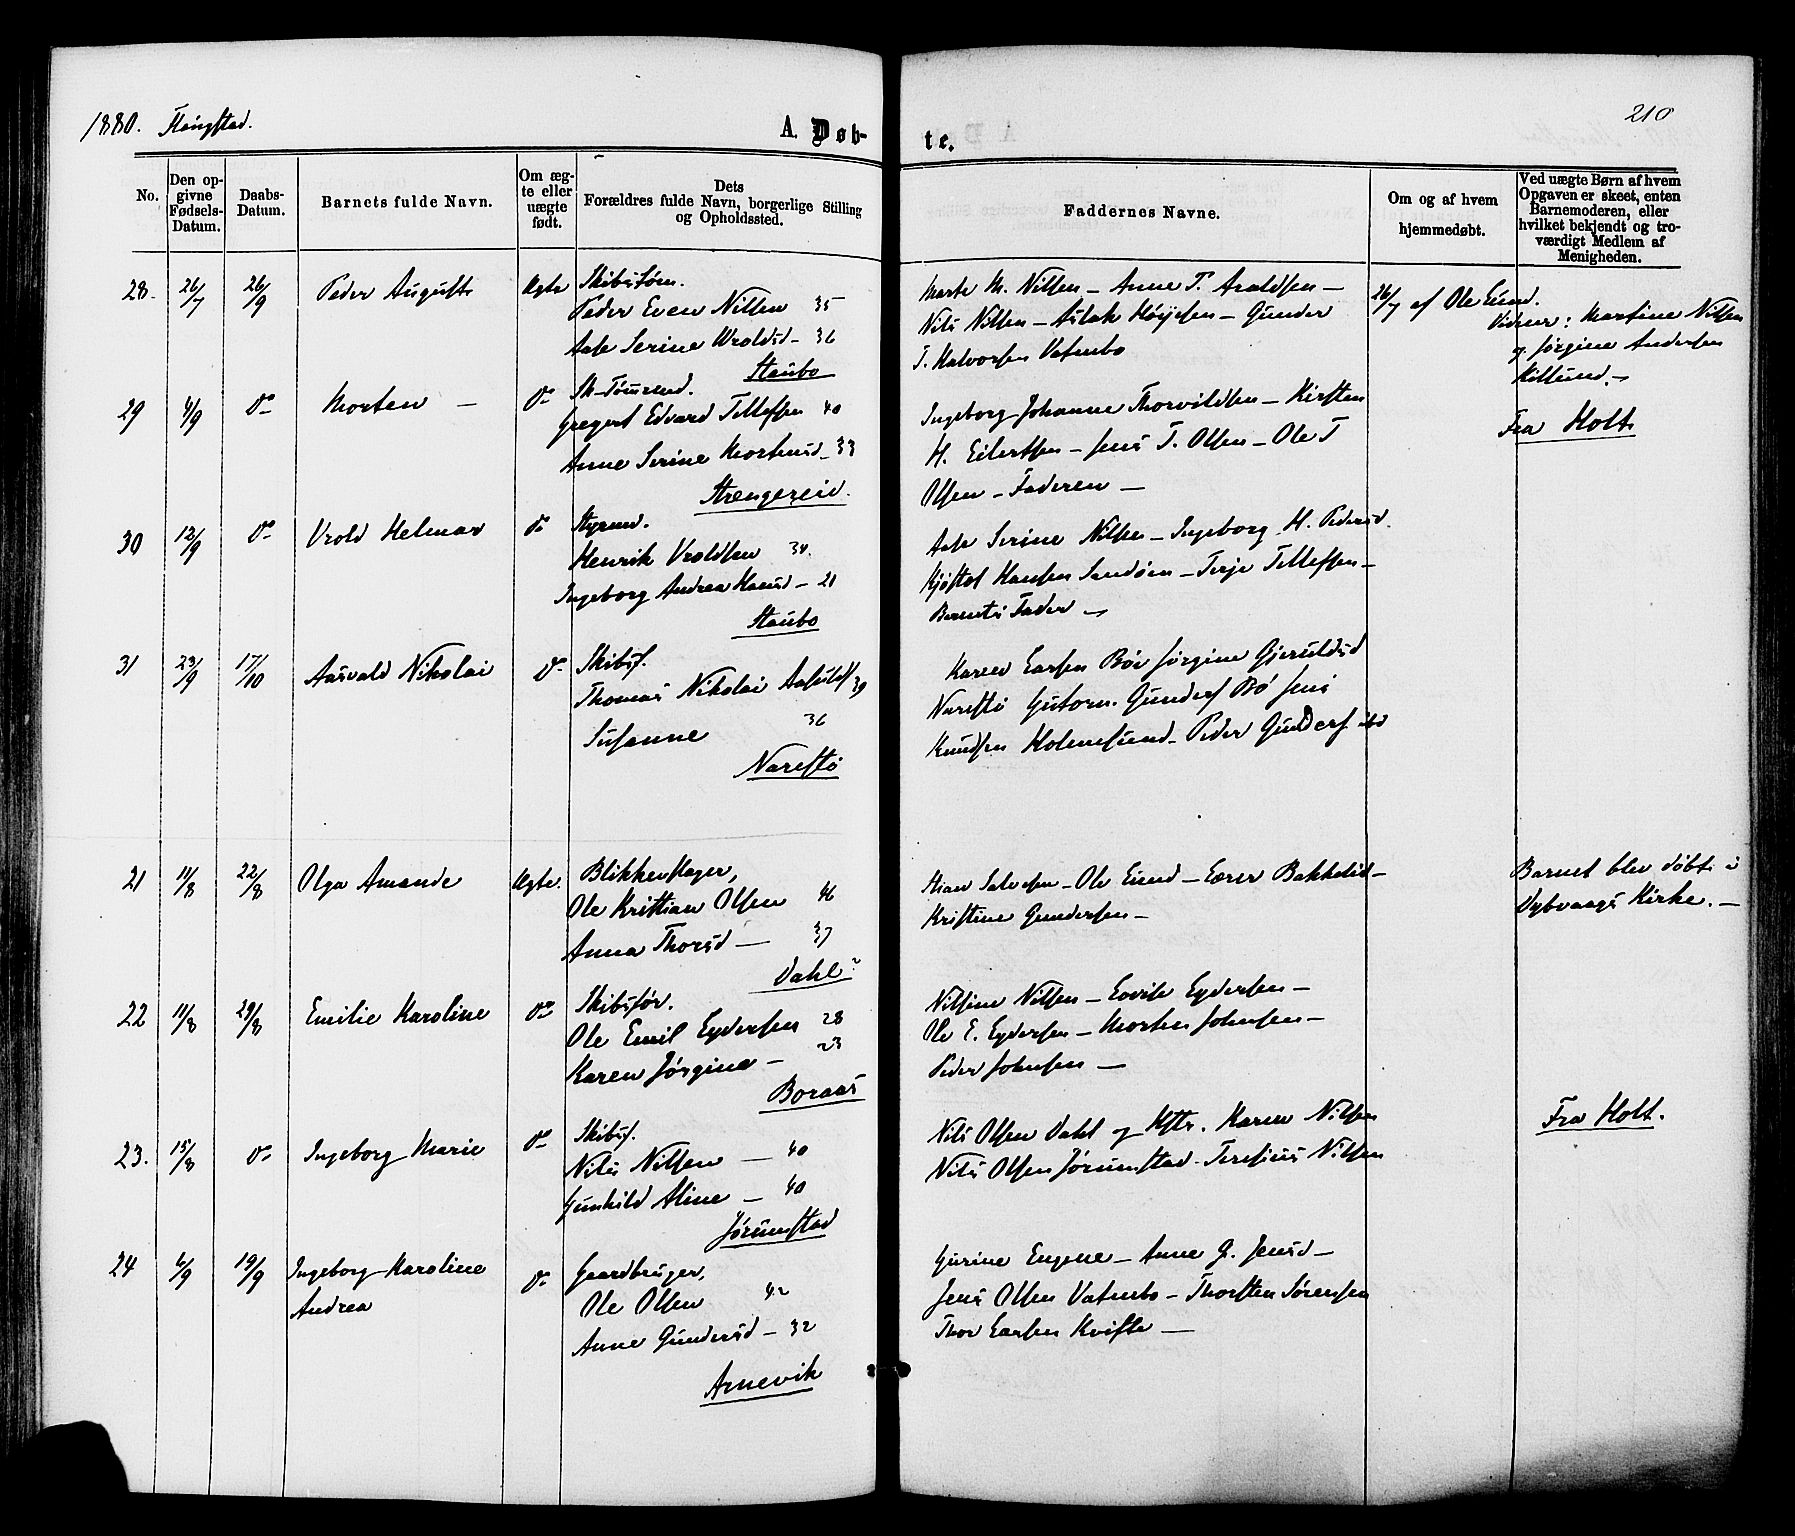 1880. Flangstad.
210
A. Døb-
te.
No.
Den op-
givne
Fødsels-
Datum.
Daabs-
Datum.
Barnets fulde Navn.
Om æg-
te eller
uægte
født.
Dets
Forældres fulde Navn, borgerlige Stilling
og Opholdssted.
Faddernes Navne.
Om og af hvem
hjemmedøbt.
Ved uægte Børn af hvem
Opgaven er skeet, enten
Barnemoderen, eller
hvilket bekjendt og tro-
værdigt Medlem af
Menigheden.
28. 26/7 26/9 Peder August Ægte Skibstøm.
Peder Even Nilsen 35
Aase Serine Wroldsd - 36
Staubo
Marte M. Nilsen - Anne T. Aroldsen -
Nils Nilsen - Aslak - Gunder
T. Halvorsen Vatnebo
26/7 af Ole Eund.
Vidner: Martine Nilsen
og Jørgine Andersen
Killund. -
29 4/9 do Morten - do Sk-Tømmend.
Gregert Edvard Tellefsen 40
Anne Serine Mortensd - 33
Strengereid.
Ingeborg Johanne Thorvildsen - Kirsten
H. Eilertsen - Jens T. Olsen - Ole T
Olsen - Faderen -
Fra Holt
30 12/9 do Vrold Helmar do Styrmd.
Henrik Vroldsen 34.
Ingeborg Andrea Hansd - 21
Staubo
Aase Serine Nilsen - Ingeborg H. Pedersd.
Kjøstol Hansen Sandøen - Terje Tellefsen -
Barnets Fader -
31 23/9 17/10 Aasvald Nikolai do Skibsf.
Thomas Nikolai 39
Susanne 36
Narestø
Karen Larsen Bøe Jørgine Gjeruldsd
Narestø Guttorm. Gunders Bø Jens
Knudsen Holmesund - Peder Gunders. ibd
21 11/8 22/8 Olga Amande Ægte. Blikkenslager,
Ole Kristian Olsen 46
Anna Thorsd - 37
Dahl
Salvesen - Ole Eund - Lærer Bakkelid -
Kristine Gundersen -
Barnet blev døbt i
Dybvaags Kirke. -
22 11/8 29/8 Emilie Karoline do Skibsfør.
Ole Emil Eydersen 28
Karen Jørgine - 23
Boraas
Nilsine Nilsen - Lovise Eydersen -
Ole E. Eydersen - Morten Johnsen -
Peder Johnsen -
23. 15/8 do Ingeborg Marie do Skibsf.
Nils Nilsen - 40
Gunhild Aline - 40
Jørumstad
Nils Olsen Dahl og Hstr. Karen Nilsen
Nils Olsen Jørumstad - Teresius Nilsen
Fra Holt.
24 6/9 19/9 Ingeborg Karoline
Andrea do Gaardbruger,
Ole Olsen 42
Anne Gundersd - 32
Arnevik
Gurine Eugene - Anne G. Jensd -
Jens Olsen Vatnebo - Thorsten Sørensen
Thor Larsen Kviste -